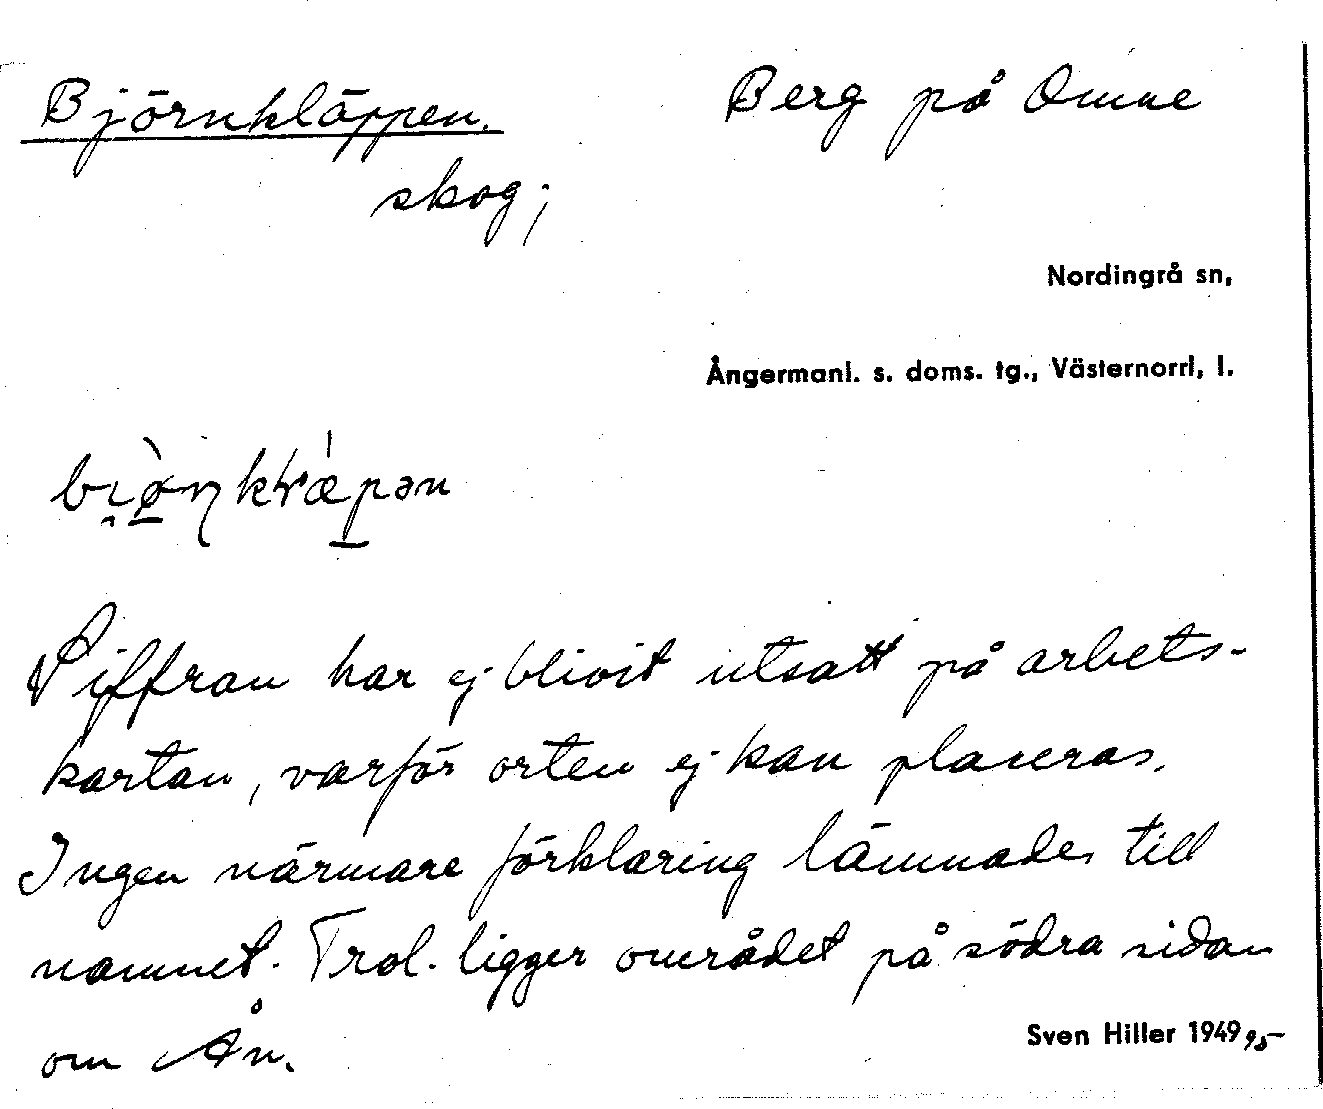 Björnkläppen. Berg på Omne
skog;
Nordingrå sn,
Ångermanl. s. doms. tg., Västernorrl. l.
Siffran har ej blivit utsatt på arbets-
kartan, varför orten ej kan placeras.
Ingen närmare förklaring lämnades till
namnet. Trol. ligger området på södra sidan
om Ån.
Sven Hiller 1949